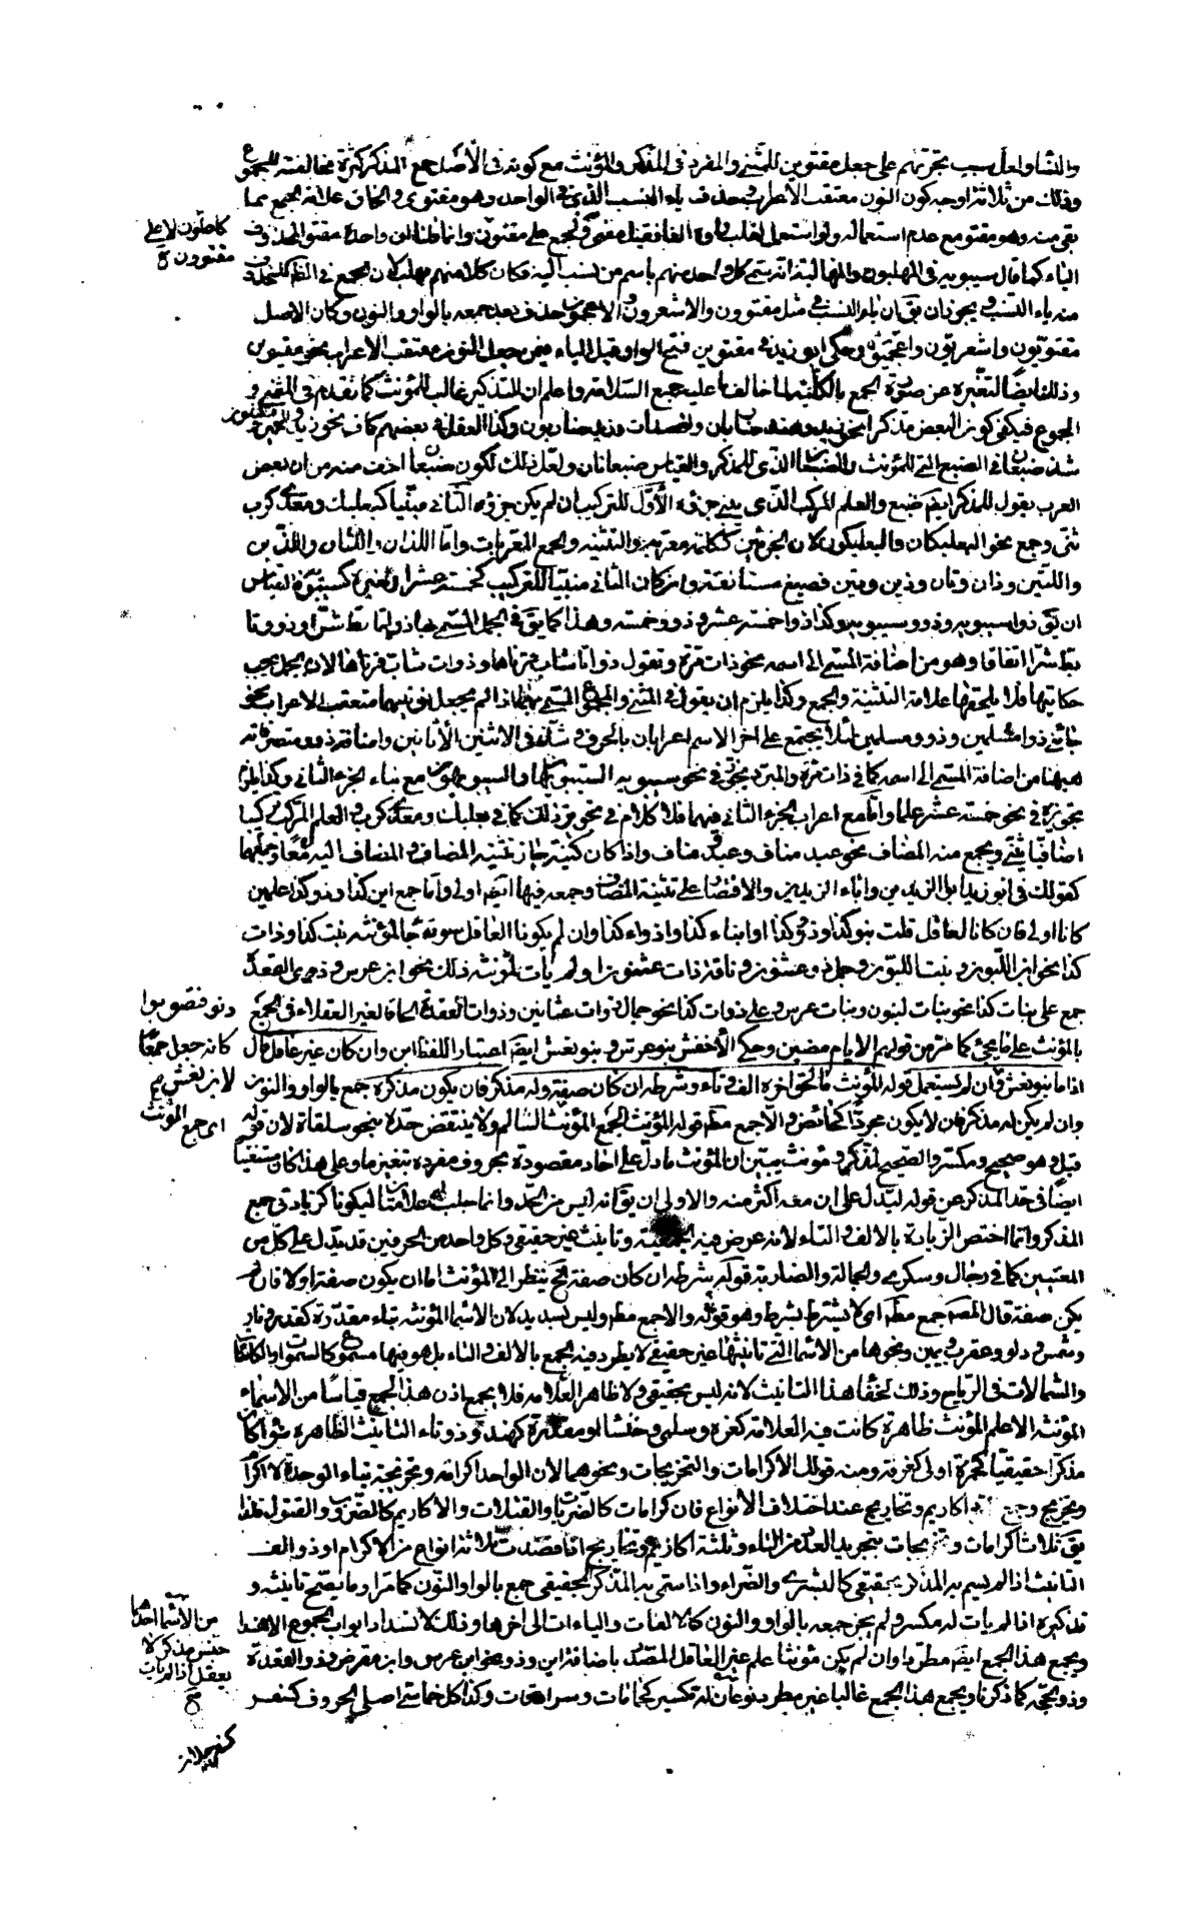 والثنا ولعل سبب تجرئهم على جعل مقتوين للمثنى والمفرد فى المذكر والمؤنث مع كونه فى الأصل جمع المذكر كثرة مخالفته للجموع
وذلك من ثلاثة اوجه كون النون معتقب الأعراب وحذف ياء النسب الذى فى الواحد وهو مقتوى والحاق علامة الجمع بما
بقى منه وهو مقتو مع عدم استعماله ولو استعمل لقلب واوه الفا فقيل مقتى وجمع على مقتون وانما قلنا ان واحده مقتو المحذوف
الياء كما قال سيبويه فى المهلبون والمهالبة انه سمى كل واحد منهم باسم من نسب اليه فكان كلا منهم مهلب لان الجمع فى الظاهر للمحذوف
منه ياء النسب ويجوز ان يقال ان ياء النسب فى مثل مقتوون والاشعرون والاعجمون حذف بعد جمعه بالواو والنون وكان الاصل
مقتويون واشعريون واعجميون وحكى ابو زيد فى مقتوين فتح الواو قبل الياء فيمن جعل النون معتقب الاعراب نحو مقتوين
وذلك ايضا لتغيره عن صورة الجمع بالكلية لما خالف ما عليه جمع السلامة واعلم ان المذكر غالب للمؤنث كما تقدم فى المثنى و
المجموع فيكفى كون البعض مذكرا نحو زيد وهند ضاربان وزيد والهندات ضاربون وكذا العقل فى بعضهم كاف نحو زيد والحمير
شذ ضبعان فى الضبع التى للمؤنث والضبعان الذى للمذكر والقياس ضبعانان ولعل ذلك لكون ضبعان اخف منه مع ان بعض
العرب يقول للمذكر ايضا ضبع والعلم المركب الذى يبنى جزؤه الأول للتركيب ان لم يكن جزؤه الثانى مبنيا كبعلبك ومعدى كرب
ثنى وجمع نحو البعلبكان والبعلبكون لان الجزئين ككلمة معربة والتثنية والجمع للمعربات واما اللذان واللتان واللذين
واللتين وذان وتان وذين وتين فصيغ مستأنفة وان كان الثانى مبنيا للتركيب كخمسة عشر او لغيره كسيبويه فالقياس
ان يقال ذوا سيبويه وذوو سيبويه وكذا ذوا خمسة عشر وذوو خمسة وهذا كما يقال فى الجمل المسمى بها ذوا تأبط شرا وذوو تأ
بط شرا اتفاقا وهو من اضافة المسمى الى اسمه نحو ذات مرة وتقول ذواتا شاب قرناها وذوات شاب قرناها لان الجمل يجب
حكايتها فلا يلحقها علامة التثنية والجمع وكذا يلزم ان يقول فى المثنى والمجموع المسمى بهما اذا لم يجعل نونهما متعقب الاعراب نحو
جاءنى ذوا مسلمين وذوو مسلمين لئلا يجتمع على آخر الاسم اعرابان بالحروف
ههنا من اضافة المسمى الى اسمه كما فى ذات مرة والمبرد يجيز فى نحو سيبويه السيبويهان والسيبويهون مع بناء الجزء الثانى وكذا يلزم
تجويزه فى نحو خمسة عشر علما واما مع اعراب الجزء الثانى فيهما فلا كلام فى تجويز ذلك كما فى بعلبك ومعدى كرب والعلم المركب تركيبا
اضافيا يثنى ويجمع منه المضاف نحو عبدا مناف وعبدو مناف واذا كان كنية جاز تثنية المضاف والمضاف اليه معا وجمعهما
كقولك فى ابو زيد ابوا الزيدين وآباء الزيدين والاقتصار على تثنية المضاف وجمعه فيها ايضا اولى واما جمع ابن كذا وذو كذا علمين
كانا اولا فان كانا لعاقل قلت بنو كذا وذوو كذا او ابناء كذا واذواء كذا وان لم يكونا لعاقل سواء جاء لمؤنثه بنت كذا وذات
كذا نحو ابن اللبون وبنت اللبون وجمل ذو عثنون وناقة ذات عثنون او لم يأت لمؤنثه ذلك نحو ابن عرس وذى القعدة
جمع على بنات كذا نحو بنات لبون وبنات عرس وعلى ذوات كذا نحو جمال ذوات عثانين وذوات القعدة الحاقا لغير العقلاء فى الجمع
بالمؤنث على ما يجئ كما مر من قولهم الايام مضين وحكى الأخفش بنو عرس وبنو نعش ايضا اعتبارا للفظ ابن وان كان غير عاقل قال
اذا ما بنو نعش قوله المؤنث ما لحق آخره الف وتاء وشرطه ان كان صفة وله مذكر فان يكون مذكره جمع بالواو والنون
وان لم يكن له مذكر فان لا يكون مجردا كحائض والا جمع مطلقا قوله المؤنث الجمع المؤنث السالم ولا ينتقض حده بنحو سلقاة لان قوله
قبل وهو صحيح ومكسر والصحيح لمذكر ومؤنث يبين ان المؤنث ما دل على آحاد مقصودة بحروف مفرده بتغيير ما وعلى هذا كان مستغنيا
ايضا فى حد المذكر عن قوله ليدل على ان معه اكثر منه والاولى ان يقال انه ليس من الحد وانما جلب له علامتان ليكونا كزيادتى جمع
المذكر وانما اختص الزيادة بالالف والتاء لانه عرض فيه الجمعية وتأنيث غير حقيقى وكل واحد من الحرفين قد يدل على كل من
المعنيين كما فى رجال وسكرى والجمالة والضاربة قوله بشرطه ان كان صفة الخ ينظر الى المؤنث اما ان يكون صفة او لا فان لم
يكن صفة قال المصنف جمع مطلقا اى لا يشترط بشرط وهو قوله والا جمع مطلقا وليس بسديد لان الاسماء المؤنثة بتاء مقدرة كقدر ونار
وشمس ودلو وعقرب ويمين ونحوها من الأسماء التى تأنيثها غير حقيقى لا يطرد فيه الجمع بالالف والتاء بل هو فيها مسموع كالسموات والكائنات
والشمالات فى الرياح وذلك لخفاء هذا التأنيث لانه ليس بحقيقى ولا ظاهر العلامة فلا يجمع اذن هذا الجمع قياسا من الاسماء
المؤنثة الا علم المؤنث ظاهرة كانت فيه العلامة كعزة وسلمى وخنساء او مقدرة كهند وذو تاء التأنيث الظاهرة سواء كان
مذكرا حقيقيا كحمزة او لا كغرفة ومنه قولك الاكرامات والتخريجات ونحوهما لان الواحد اكرامة وتخريجة بتاء الوحدة لا اكرام
وتخريج وجمع اكاريم وتخاريج عند اختلاف الأنواع فان كرامات كالضربات والقتلات والاكاريم كالضروب والقتول فلذا
يقال ثلاث اكرامات وتخريجات بتجريد العدد من التاء وثلثة اكاريم وتخاريج اذا قصدت ثلاثة انواع من الاكرام او ذو الف
التانيث اذا لم يسم به المذكر الحقيقى كالبشرى والضراء واذا سمى به المذكر الحقيقى جمع بالواو والنون كما مر او ما يصح تأنيثه و
تذكيره اذا لم يأت له مكسر ولم يجز جمعه بالواو والنون كالالفات والياءات الى آخرها وذلك لانسداد ابواب الجموع الا هذا
ويجمع هذا الجمع ايضا مطردا وان لم يكن مؤنثا علم غير العاقل المصدر باضافة ابن وذو نحو ابن عرس وابن مقرض وذو القعدة
وذو الحجة كما ذكرنا ويجمع هذا الجمع غالبا غير مطرد نوعان له تكسير كحمامات وسرادقات وكذا كل خماسى اصلى الحروف كسفر
كاعلون لا على
مقتوون
ودنو فتصوبوا
كانه جعل جمعا
لابن نعش
اى جمع المؤنث
من الأسماء احدها
جنس مذكر لا
يعقل اذا لم يأت